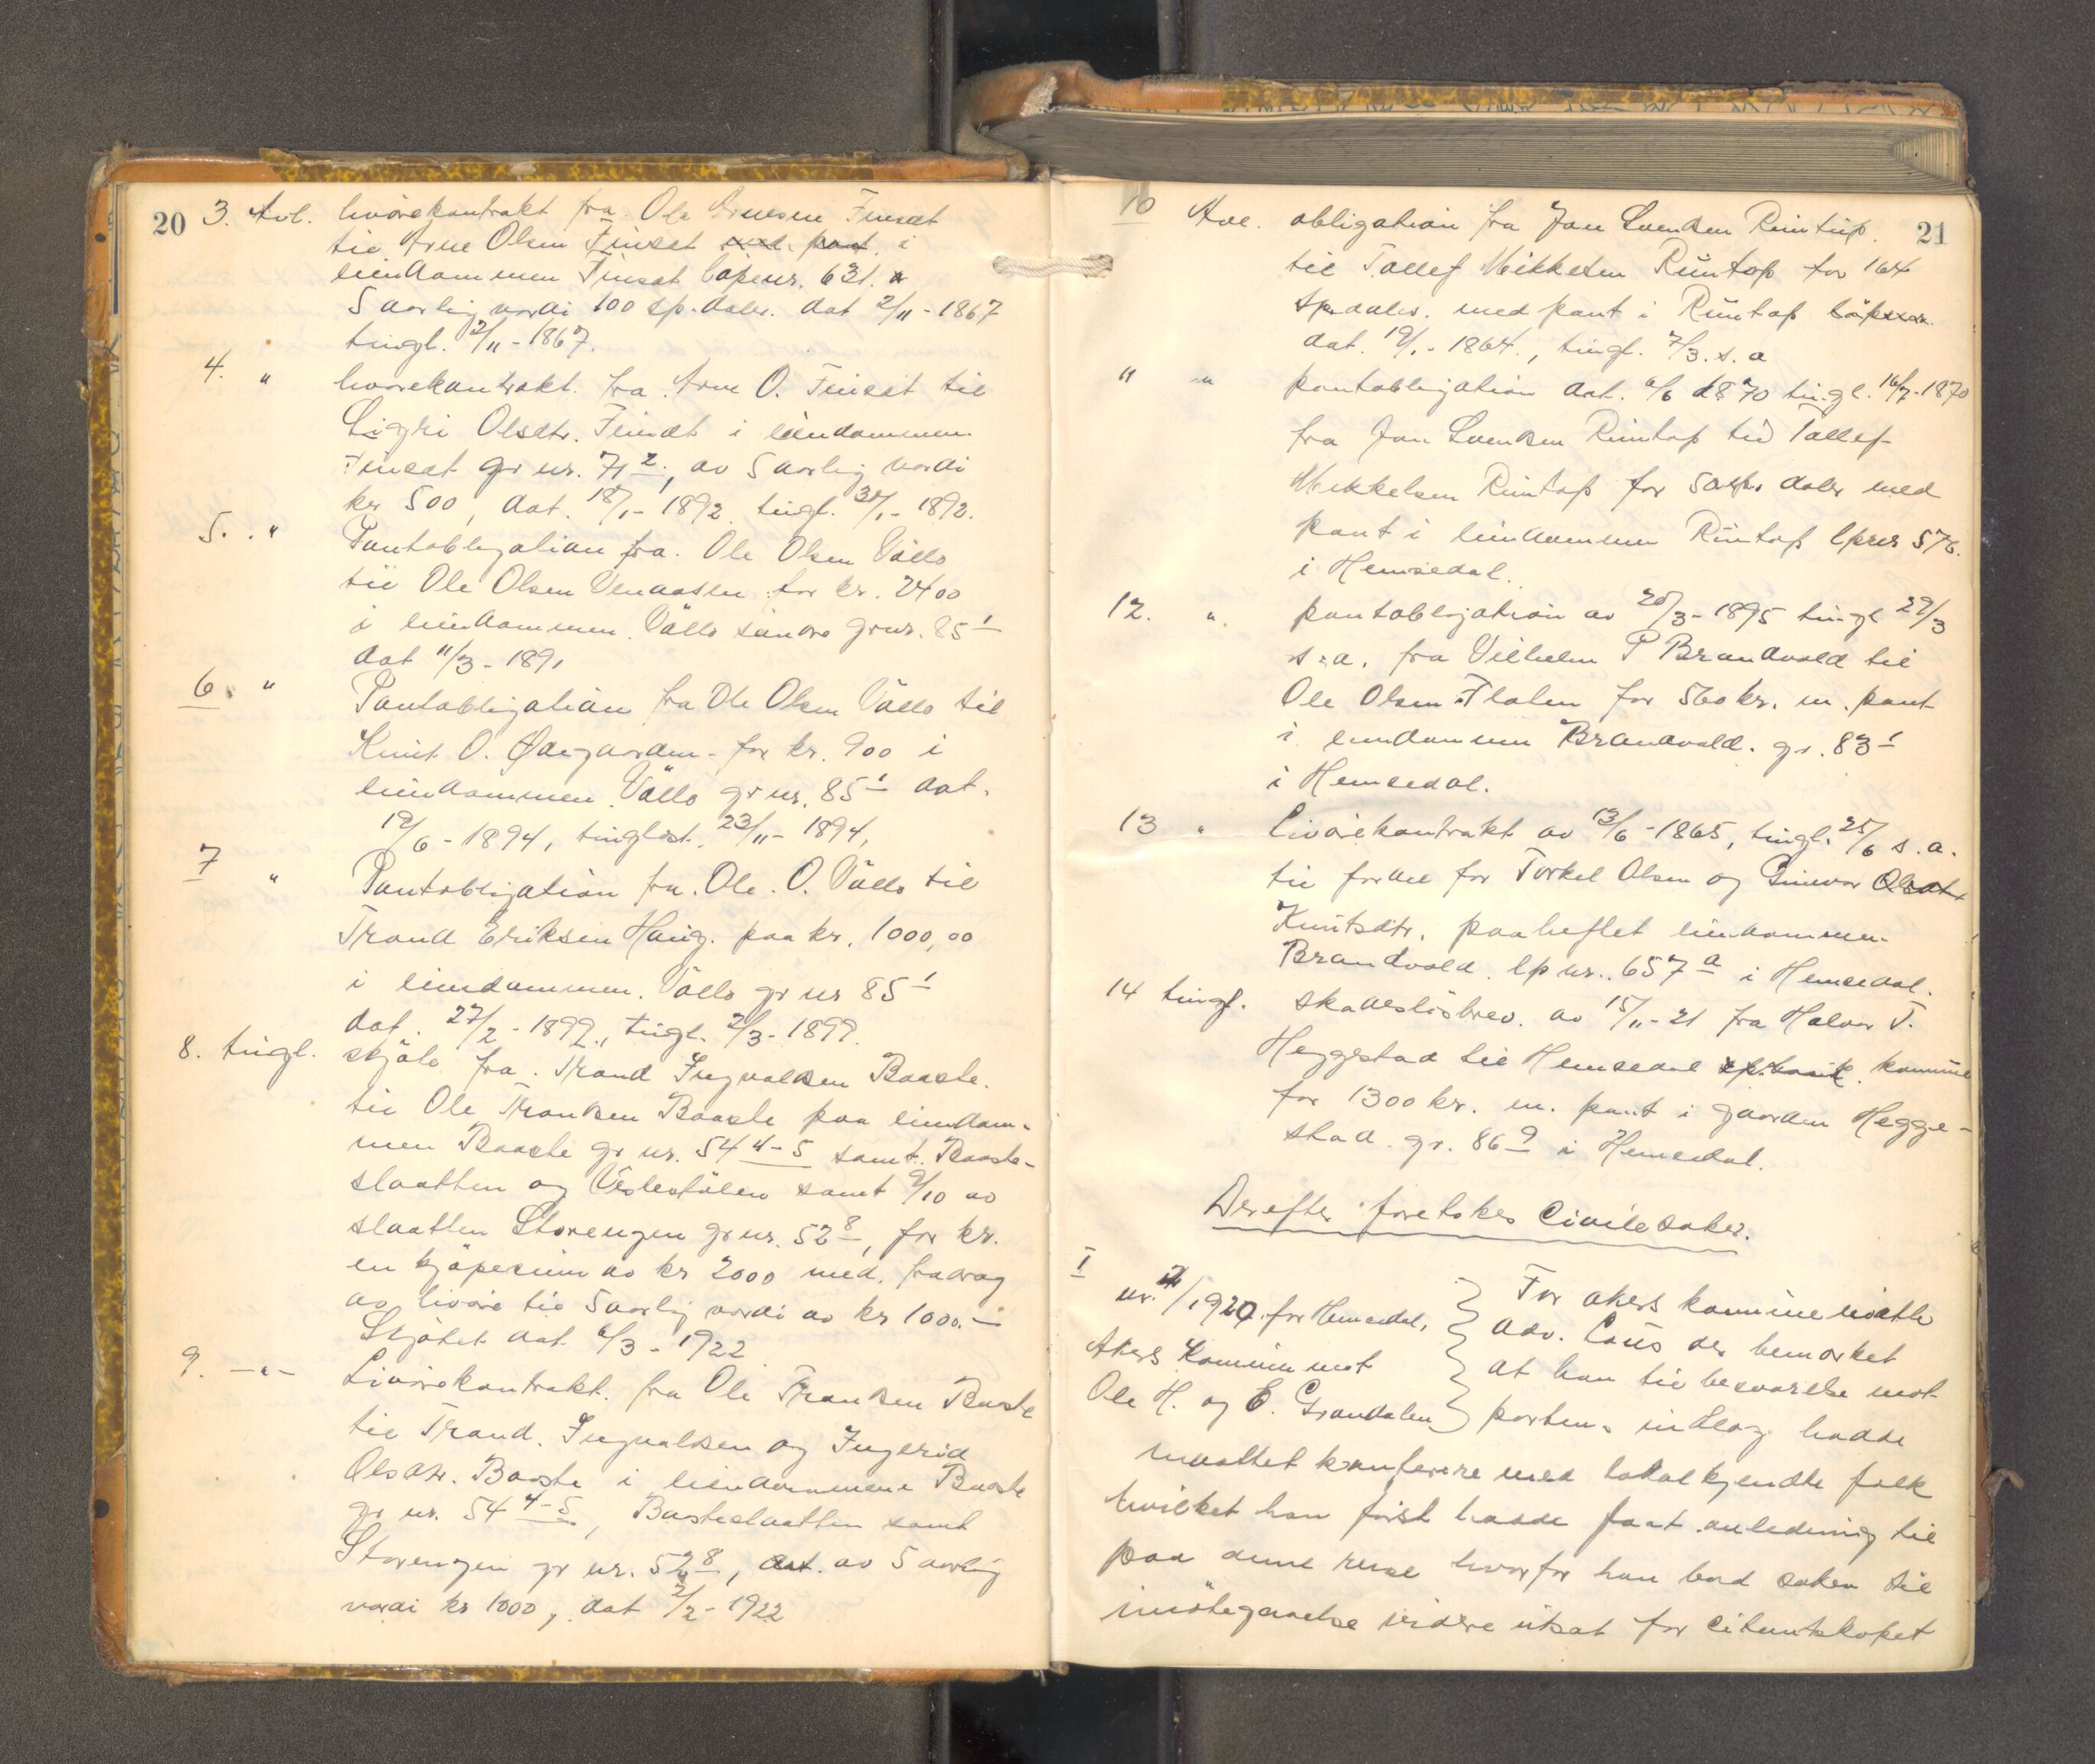 20
3. Avl. livörekontrakt fra Ole Arnesen Finset
til Arne Olsen Finset med pant i
eiendommen Finset löpenr. 631. a
5 aarlig værdi 100 sp.daler. dat 2/11 - 1867
tingl. 2/11 - 1867.
4. " livörekontrakt. fra Arne O. Finset til
Sigri Olsdtr. Finset i eiendommen
Finset gr nr. 71 2, av 5 aarlig værdi
kr 500, dat. 18/1 - 1892 tingl. /1 - 1892.
5. " Pantobligation fra Ole Olsen Völlo
til Ole Olsen Venaasen for kr. 2400
i eiendommen Völlo söndre grnr. 85 1
dat 11/3 - 1891
6. " Pantobligation fra Ole Olsen Völlo til
Knut O. Ødegaarden - for kr. 900 i
eiendommen Völlo gr nr. 85 1 dat.
19/6 - 1894, tinglæst 23/11 - 1894,
7 " Pantobligation fra Ole O. Völlo til
Trond Eriksen Haug. paa kr. 1000,00
i eiendommen Völlo gr nr 85 1
dat. 27/2 - 1899, tingl. 2/3 - 1899.
8. tingl. skjöte fra Trond Ingvaldsen Baaste
til Ole Trondsen Baaste paa eiendom-
men Baaste gr nr. 54 4-5 samt Baaste-
slaatten og samt 9/10 av
slaatten Storengen grnr. 52 8, for kr.
en kjöpesum av kr 2000 med fradrag
av livöre til 5 aarlig værdi av kr 1000.-
Skjötet dat. 6/3 - 1922
9. -"- Livörekontrakt fra Ole Trondsen Baaste
til Trond Ingvaldsen og Ingerid
Olsdtr. Baaste i eiendommene Baaste
gr nr. 54 4-5, Baasteslaatten samt
Storengen gr nr. 52 8, dat. av 5 aarlig
værdi kr 1000, dat 2/2 - 1922
21
10 Avl. obligation fra Jon Svendsen Runtop
til Tollef Mikkelsen Runtop for 164
spdaler. med pant i Runtop
dat. 19/1 - 1864., tingl. 7/3 s. a
" " pantobligation dat. 6/6 1870 tingl. 16/7 - 1870
fra Jon Svendsen Runtop til Tollef
Mikkelsen Runtop for 50 sp. daler med
pant i eiendommen Runtop lpnr 576.
i Hemsedal.
12. " pantobligation av 20/3 - 1895 tingl 29/3
s. a. fra Vilhelm P Brandvold til
Ole Olsen Flaten for 560 kr. m. pant
i eiendommen Brandvold. gr. 83 1
i Hemsedal.
13 " Livörekontrakt av 13/6 - 1865, tingl. 25/6 s. a.
til fordel for Torkel Olsen og Gunvor Olsdtr
Knutsdtr. paaheftet eiendommen
Brandvold. lp nr. 657 a i Hemsedal.
14 tingl. skadeslösbrev av 15/11 - 21 fra Halvor T.
Heggestad til Hemsedal sp.bank. kommune
for 1300 kr. m. pant i gaarden Hegge-
stad. gr. 86 9 i Hemsedal.
Derefter foretokes Civile saker.
I
nr. /1920 for Hemsedal.
Akers Kommune mot
Ole H. og E. Grøndalen
For Akers kommune
adv. der bemerket
at han til besvarelse mot
partens indlæg hadde
maattet konferere med lokalkjendte folk
hvilket han först hadde faat anledning til
paa denne reise hvorfor han bad saken til
imötegaaelse videre utsat for citantskapet